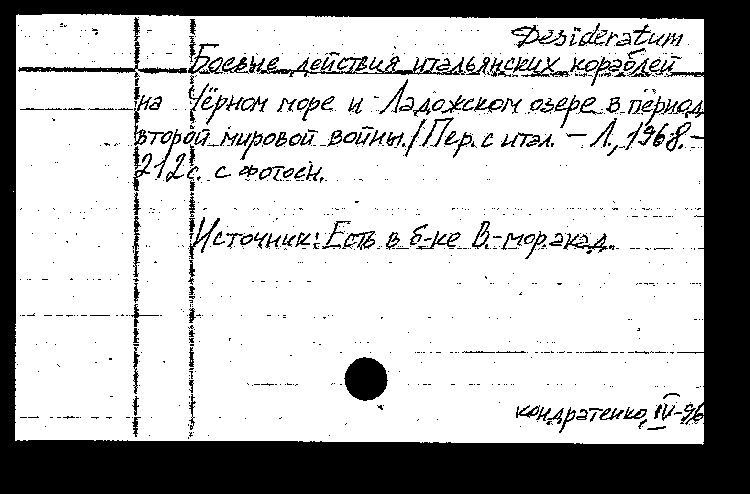 Desideratum
Боевые действия итальянских кораблей
на Чёрном море и Ладожском озере в период
второй мировой войны./Пер. с итал. – Л., 1968.–
212 с. с фотосн.
Источник: Есть в б-ке В.-мор.акад.
Кондратенко, IV-96